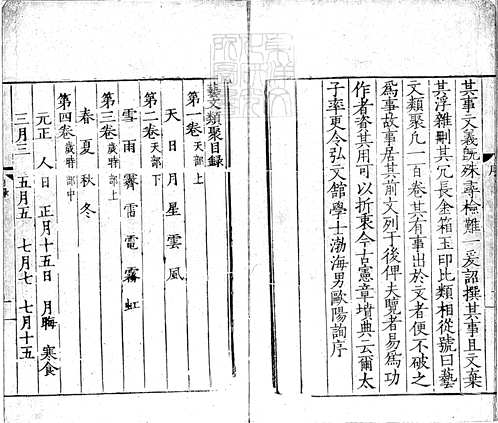 其事文義既殊尋檢難一爰詔撰其事且文棄
其浮雜刪其冗長金箱玉印比類相從號曰藝
文類聚凡一百卷其有事出於文者便不破之
為事故事居其前文列于後俾夫覽者易為功
作者資其用可以折衷今古憲章墳典云爾太
子率更令弘文館學士渤海男歐陽詢序
藝文類聚目録
第一卷 天部上
天 日 月 星 雲 風
第二卷 天部下
雪 雨 霽 雷 電 霧 虹
第三卷 歲時部上
春 夏 秋 冬
第四卷 歲時部中
元正 人日 正月十五日 月晦 寒食
三月三 五月五 七月七 七月十五